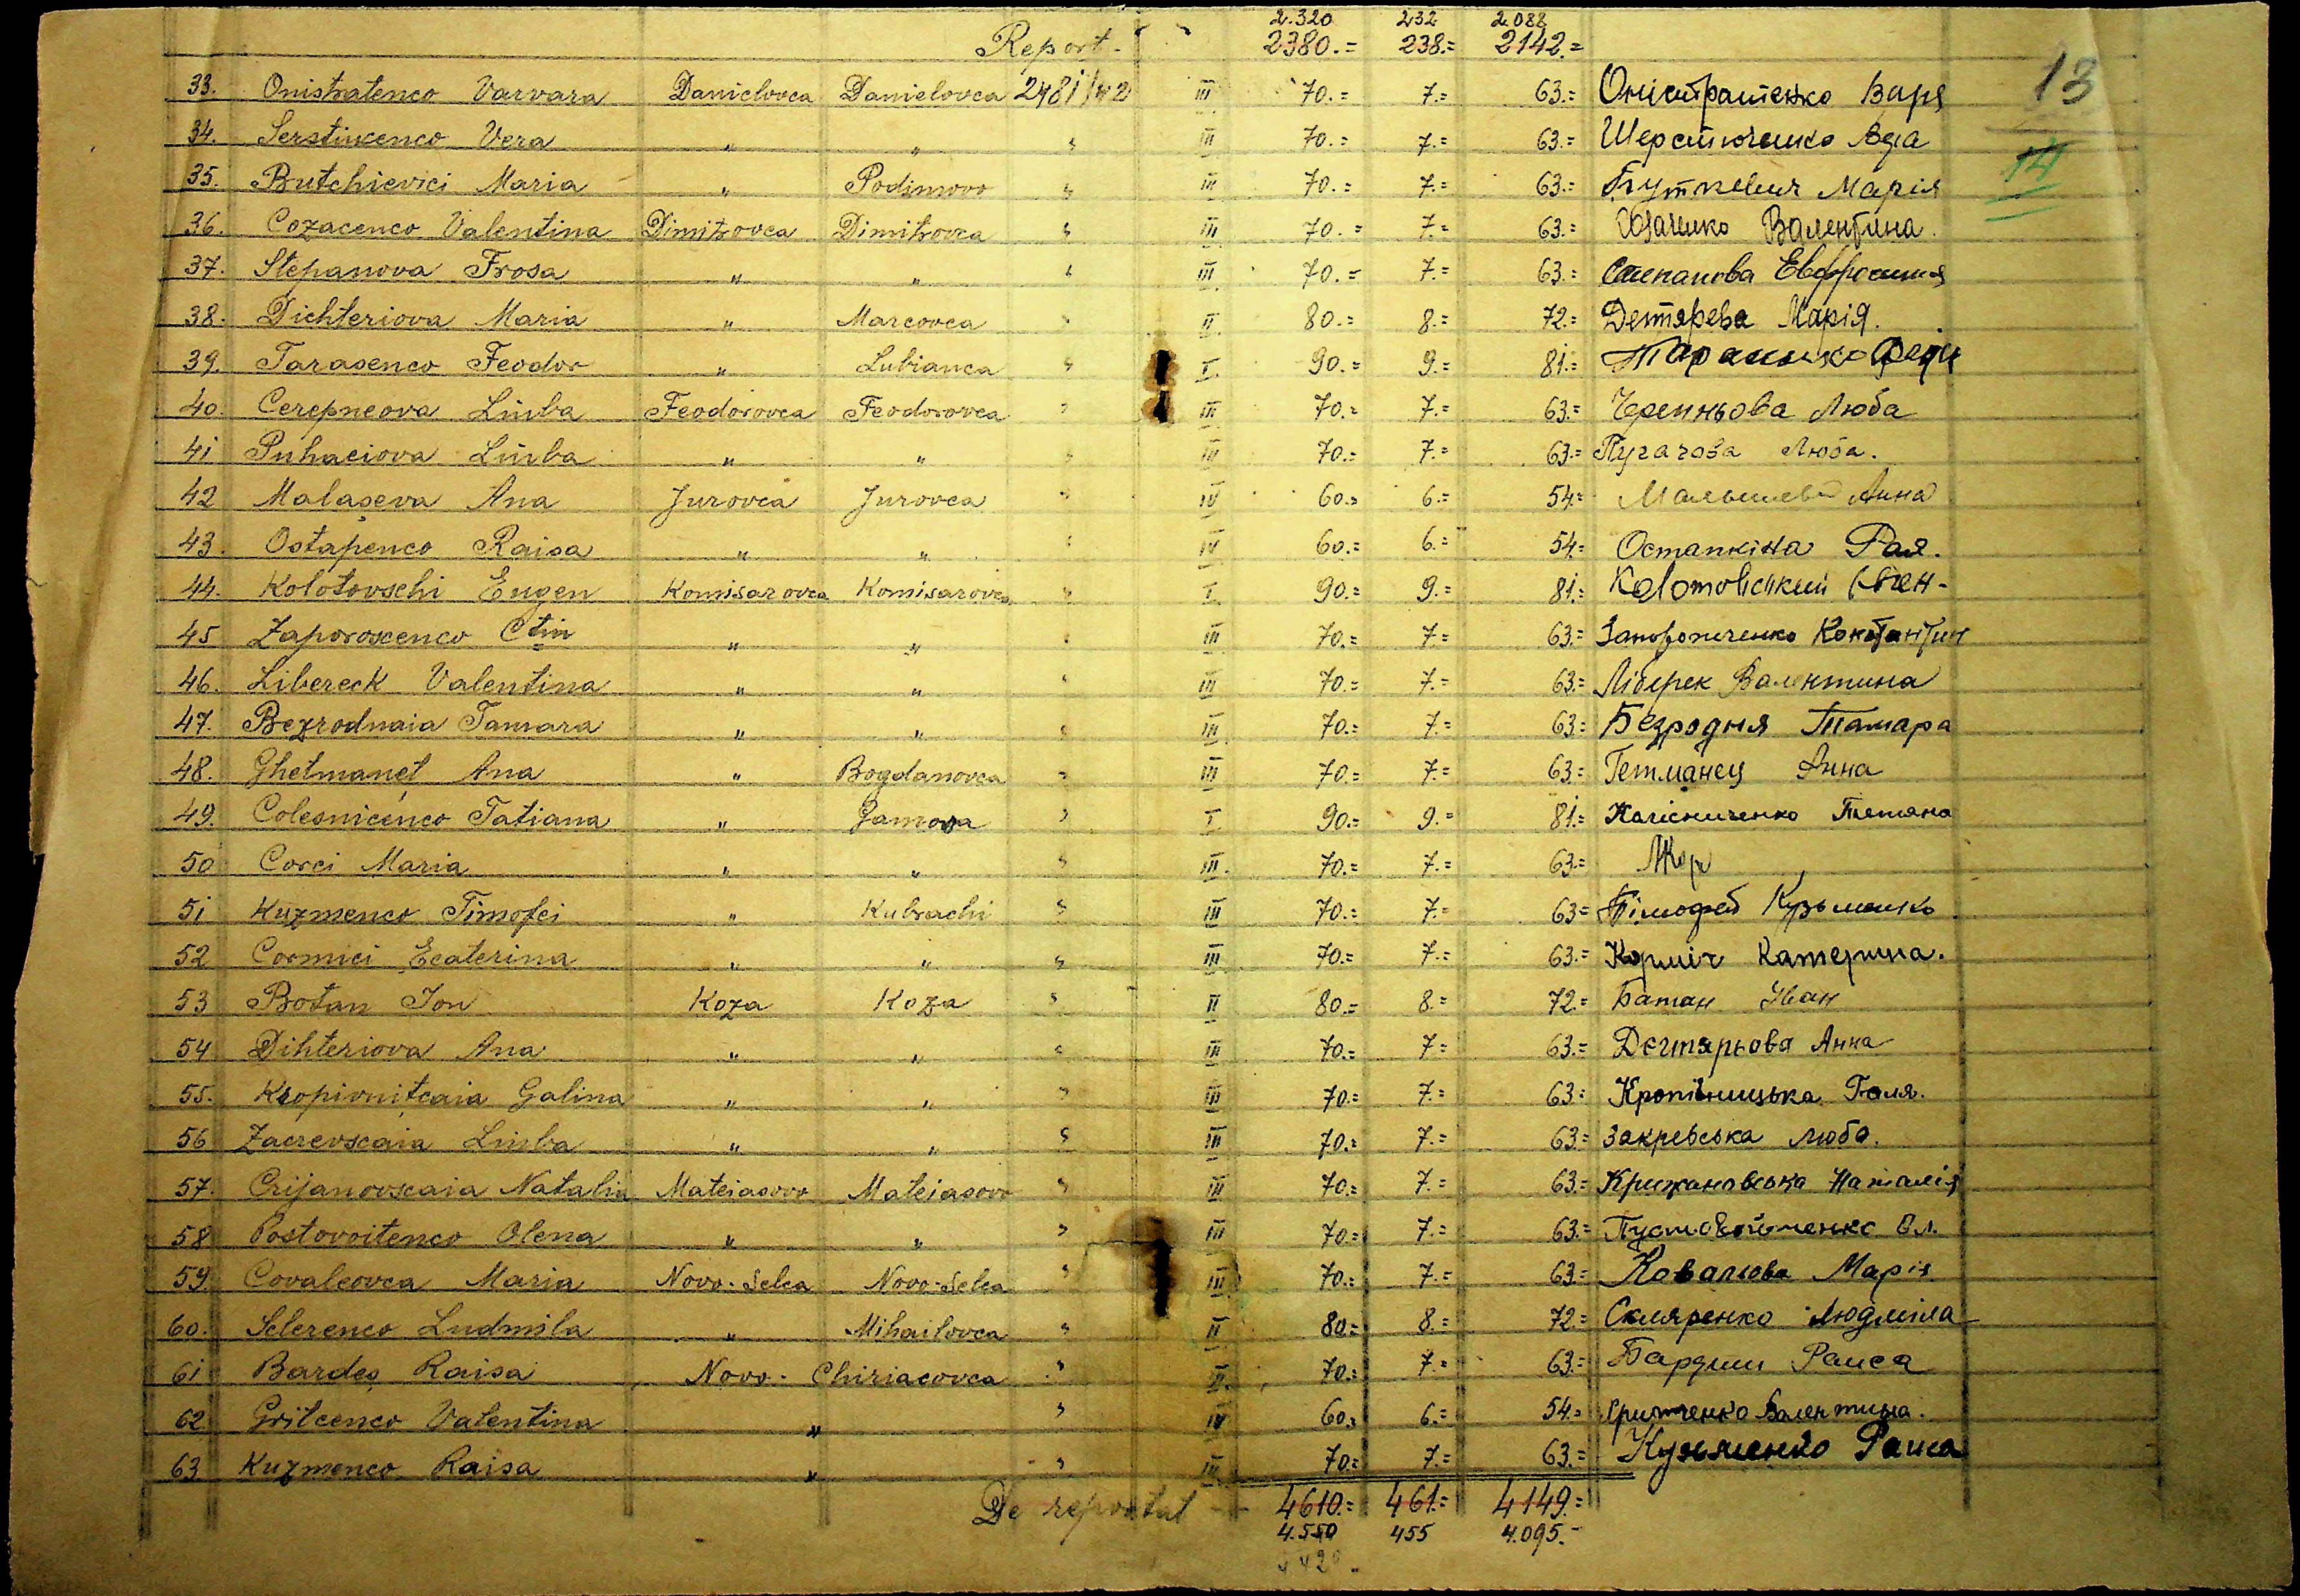 2.320 232 2.088
Report.- 2380.= 238.= 2142.=
13
14
33. Onistratenco Varvara Danielovca Danielovca 2481/42 III 70.= 7.= 63.= Оністратенко Варя
34. Serstiucenco Vera " " " III 70.= 7.= 63.= Шерстюченко Вера
35. Butchievici Maria " Podimovo " III 70.= 7.= 63.= Буткевич Марія
36. Cozacenco Valentina Dimitrovca Dimitrovca " III 70.= 7.= 63.= Валентина.
37. Stepanova Frosa " " " III 70.= 7.= 63.= Степанова Евфросиния
38. Dichteriova Maria " Marcovca " II 80.= 8.= 72.= Дегтярева Марія.
39. Tarasenco Feodor " Lubianca " I. 90.= 9.= 81.= Тарасенко Федір
40. Cerepneova Liuba Feodorovca Feodorovca " III 70.= 7.= 63.= Черепньова Люба
41 Puhaciova Liuba " " " III 70.= 7.= 63.= Пугачова Люба.
42 Malaşeva Ana Jurovca Jurovca " IV 60.= 6.= 54.= Малышева Анна
43. Ostapenco Raisa " " " IV 60.= 6.= 54.= Рая.
44. Kolotovschi Eugen Komisarovca Komisarovca " I. 90.= 9.= 81.= Колотовський Євген-
45 Zaporoscenco Ctin " " " III 70.= 7.= 63.= Запорощенко Константин
46. Libereck Valentina " " " III 70.= 7.= 63.= Ліберек Валентина
47. Bezrodnaia Tamara " " " III. 70.= 7.= 63.= Безродня Тамара
48. Ghetmaneţ Ana " Bogdanovca " III 70.= 7.= 63.= Гетманец Анна
49. Colesnicenco Tatiana " Gamova " I 90.= 9.= 81.= Калісниченко Тетяна
50 Corci Maria " " " III. 70.= 7.= 63.= МКор
51 Kuzmenco Timofei " Kubrachi " III 70.= 7.= 63.= Тімофей Кузьменко
52 Cormici Ecaterina " " " III 70.= 7.= 63.= Корміч Катерина.
53 Botan Ion Koza Koza " II 80.= 8.= 72.= Батан Іван
54 Dihteriova Ana " " " III 70.= 7.= 63.= Дегтярьова Анна
55. Kropivniţcaia Galina " " " III 70.= 7.= 63.= Кропівницька Галя.
56 Zacrevscaia Liuba " " " III 70.= 7.= 63.= Закревська Люба.
57. Crijanovscaia Natalia Mateiasovo Mateiasovo " III 70.= 7.= 63.= Крижановська Наталія
58 Postovoitenco Olena " " " III 70.= 7.= 63.= Пустовойтченко Ол.
59. Covaleovca Maria Novo-Selca Novo-Selca " III 70.= 7.= 63.= Ковальова Марія
60. Sclerenco Ludmila " Mihailovca " II 80.= 8.= 72.= Скляренко Людміла
61 Bardeş Raisa Novo-Chiriacovca " II. 70.= 7.= 63.= Раиса
62 Gritcenco Valentina " " IV 60.= 6.= 54.= Гритченко Валентина.
63 Kuzmenco Raisa " " III 70.= 7.= 63.= Кузьменко Раиса
De reportat 4610.= 461.= 4149.=
4.550 455 4.095.-